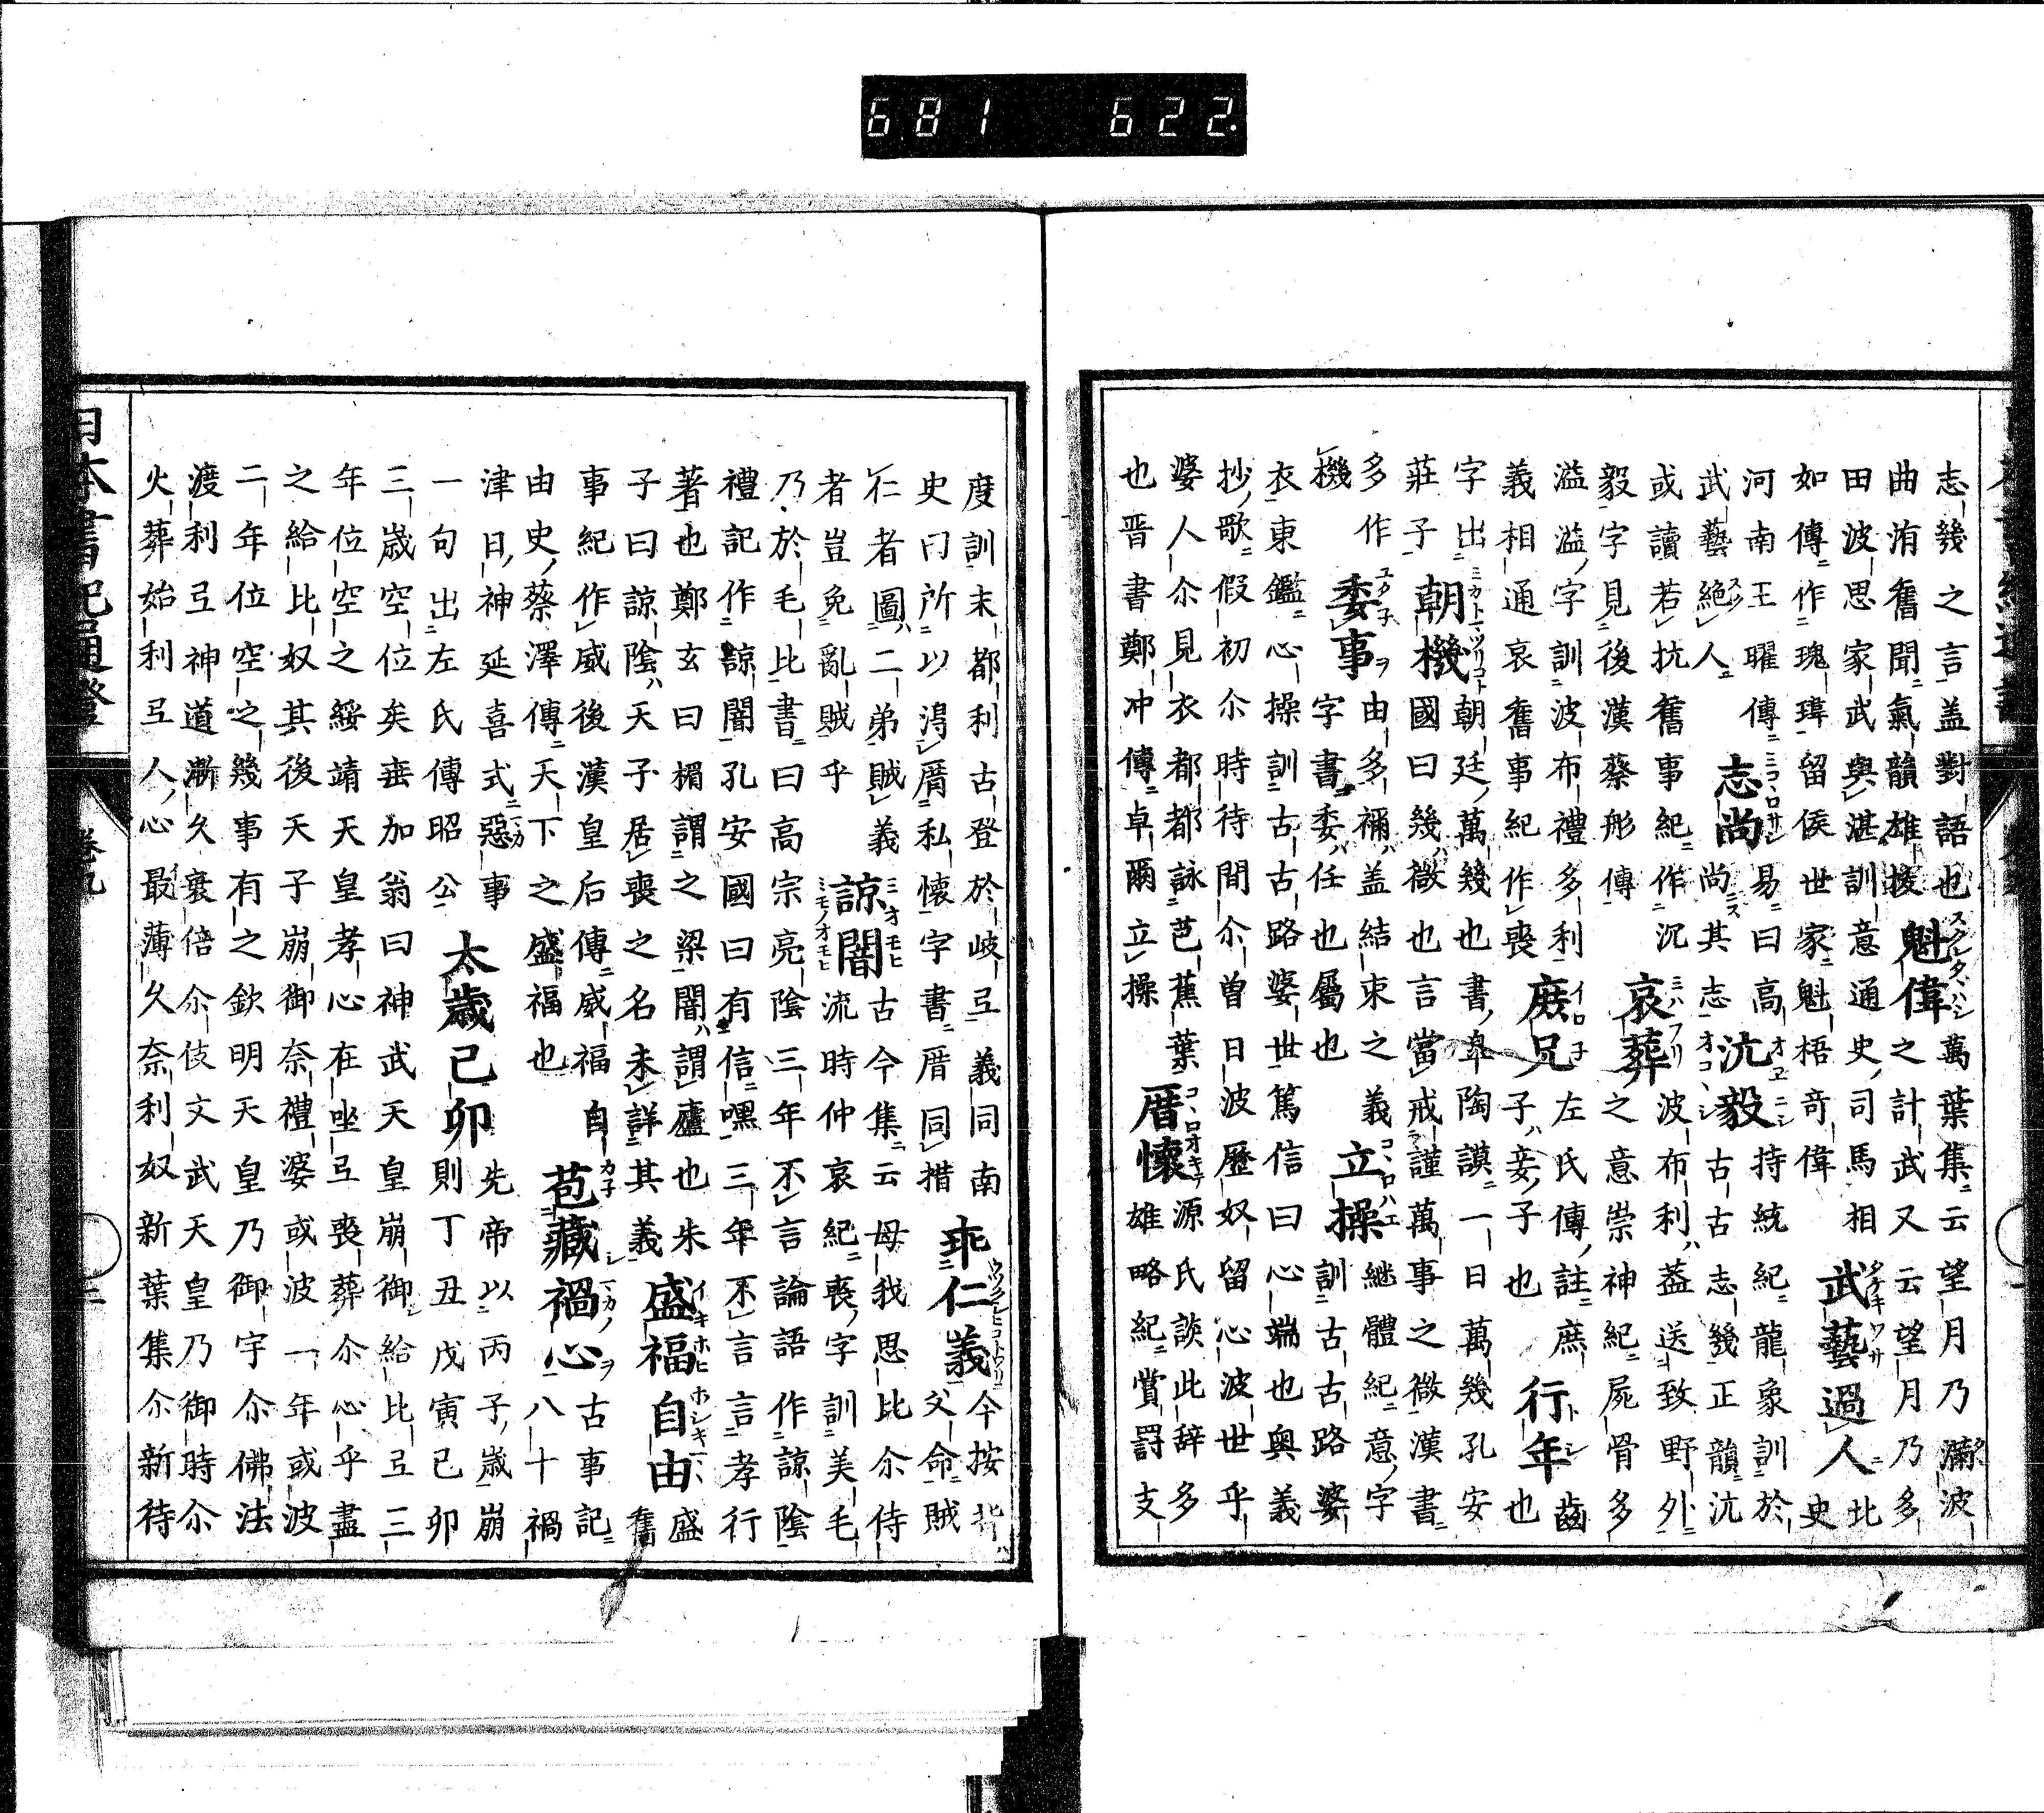 681 622
志幾之言盖對語也魁偉萬葉集云望月乃瀰波
曲洧舊聞氣韻雄拔魁偉之計武又云望月乃多
田波思家武與湛訓意通史司馬相武藝過人北
如傳作瑰瑋留侯世家魁梧奇偉史
河南王曜傳志尚易曰高沆毅持統紀龍象訓於
武藝絕人志尚尚其志古古志幾正韻沆
或讀若抗舊事紀作沉哀葬波布利盖送致野外
毅字見後漢蔡彤傳哀葬之意崇神紀屍骨多
溢溢字訓波布禮多利庶兄左氏傳註庶行年齒
義相通哀舊事紀作喪庶兄子妾子也行年也
字出朝機朝廷萬幾也書皐陶謨一日萬幾孔安
莊子朝機國曰幾微也言當戒謹萬事之微漢書
多作委事由多禰盖結束之義立操繼體紀意字
機委事字書委任也屬也立操訓古古路婆
衣東鑑心操訓古古路婆世篤信曰心端也與義
抄歌假初尒時待間尒曽日波歷奴留心波世乎
婆人尒見衣都都詠芭蕉葉厝懷源氏談此辞多
也晋書鄭冲傳卓爾立操厝懷雄略紀賞罰支
度訓末都利古登於岐弖義同南乖仁義今按背
史曰所以潟厝私懷字書厝同措乖仁義父命賊
仁者圖二弟賊義諒闇古今集云母我思比尒侍
者豈免亂賊乎諒闇流時仲哀紀喪字訓美毛
乃於毛比書曰高宗亮陰三年不言論語作諒陰
禮記作諒闇孔安國曰有信嘿三年不言言孝行
著也鄭玄曰楣謂之梁闇謂廬也朱盛福自由盛
子曰諒陰天子居喪之名未詳其義盛福自由舊
事紀作威後漢皇后傳威福自苞藏禍心古事記
由史蔡澤傳天下之盛福也苞藏禍心八十禍
津日神延喜式惡事太歲己卯先帝以丙子歲崩
一句出左氏傳昭公太歲己卯則丁丑戊寅己卯
三歲空位矣垂加翁曰神武天皇崩御給比弖三
年位空之綏靖天皇孝心在坐弖喪葬尒心乎盡
之給比奴其後天子崩御奈禮婆或波一年或波
二年位空之幾事有之欽明天皇乃御宇尒佛法
渡利弖神道漸久衰倍尒伎文武天皇乃御時尒
火葬始利弖人心最薄久奈利奴新葉集尒新待
日本書紀通證 卷九